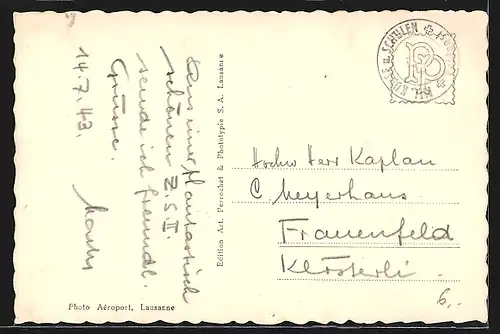 14.7.43.
Aus einer phantastisch
schönen Z.S.I.
sende ich freundl.
Grüsse.
Edition Art. Perrochet & Phototypie S. A. Lausanne
Photo Aéroport, Lausanne
MIL. KURSE U. SCHULEN
Hochw Herr Kaplan
C. Meyerhans
Frauenfeld
Klösterli.
6.-